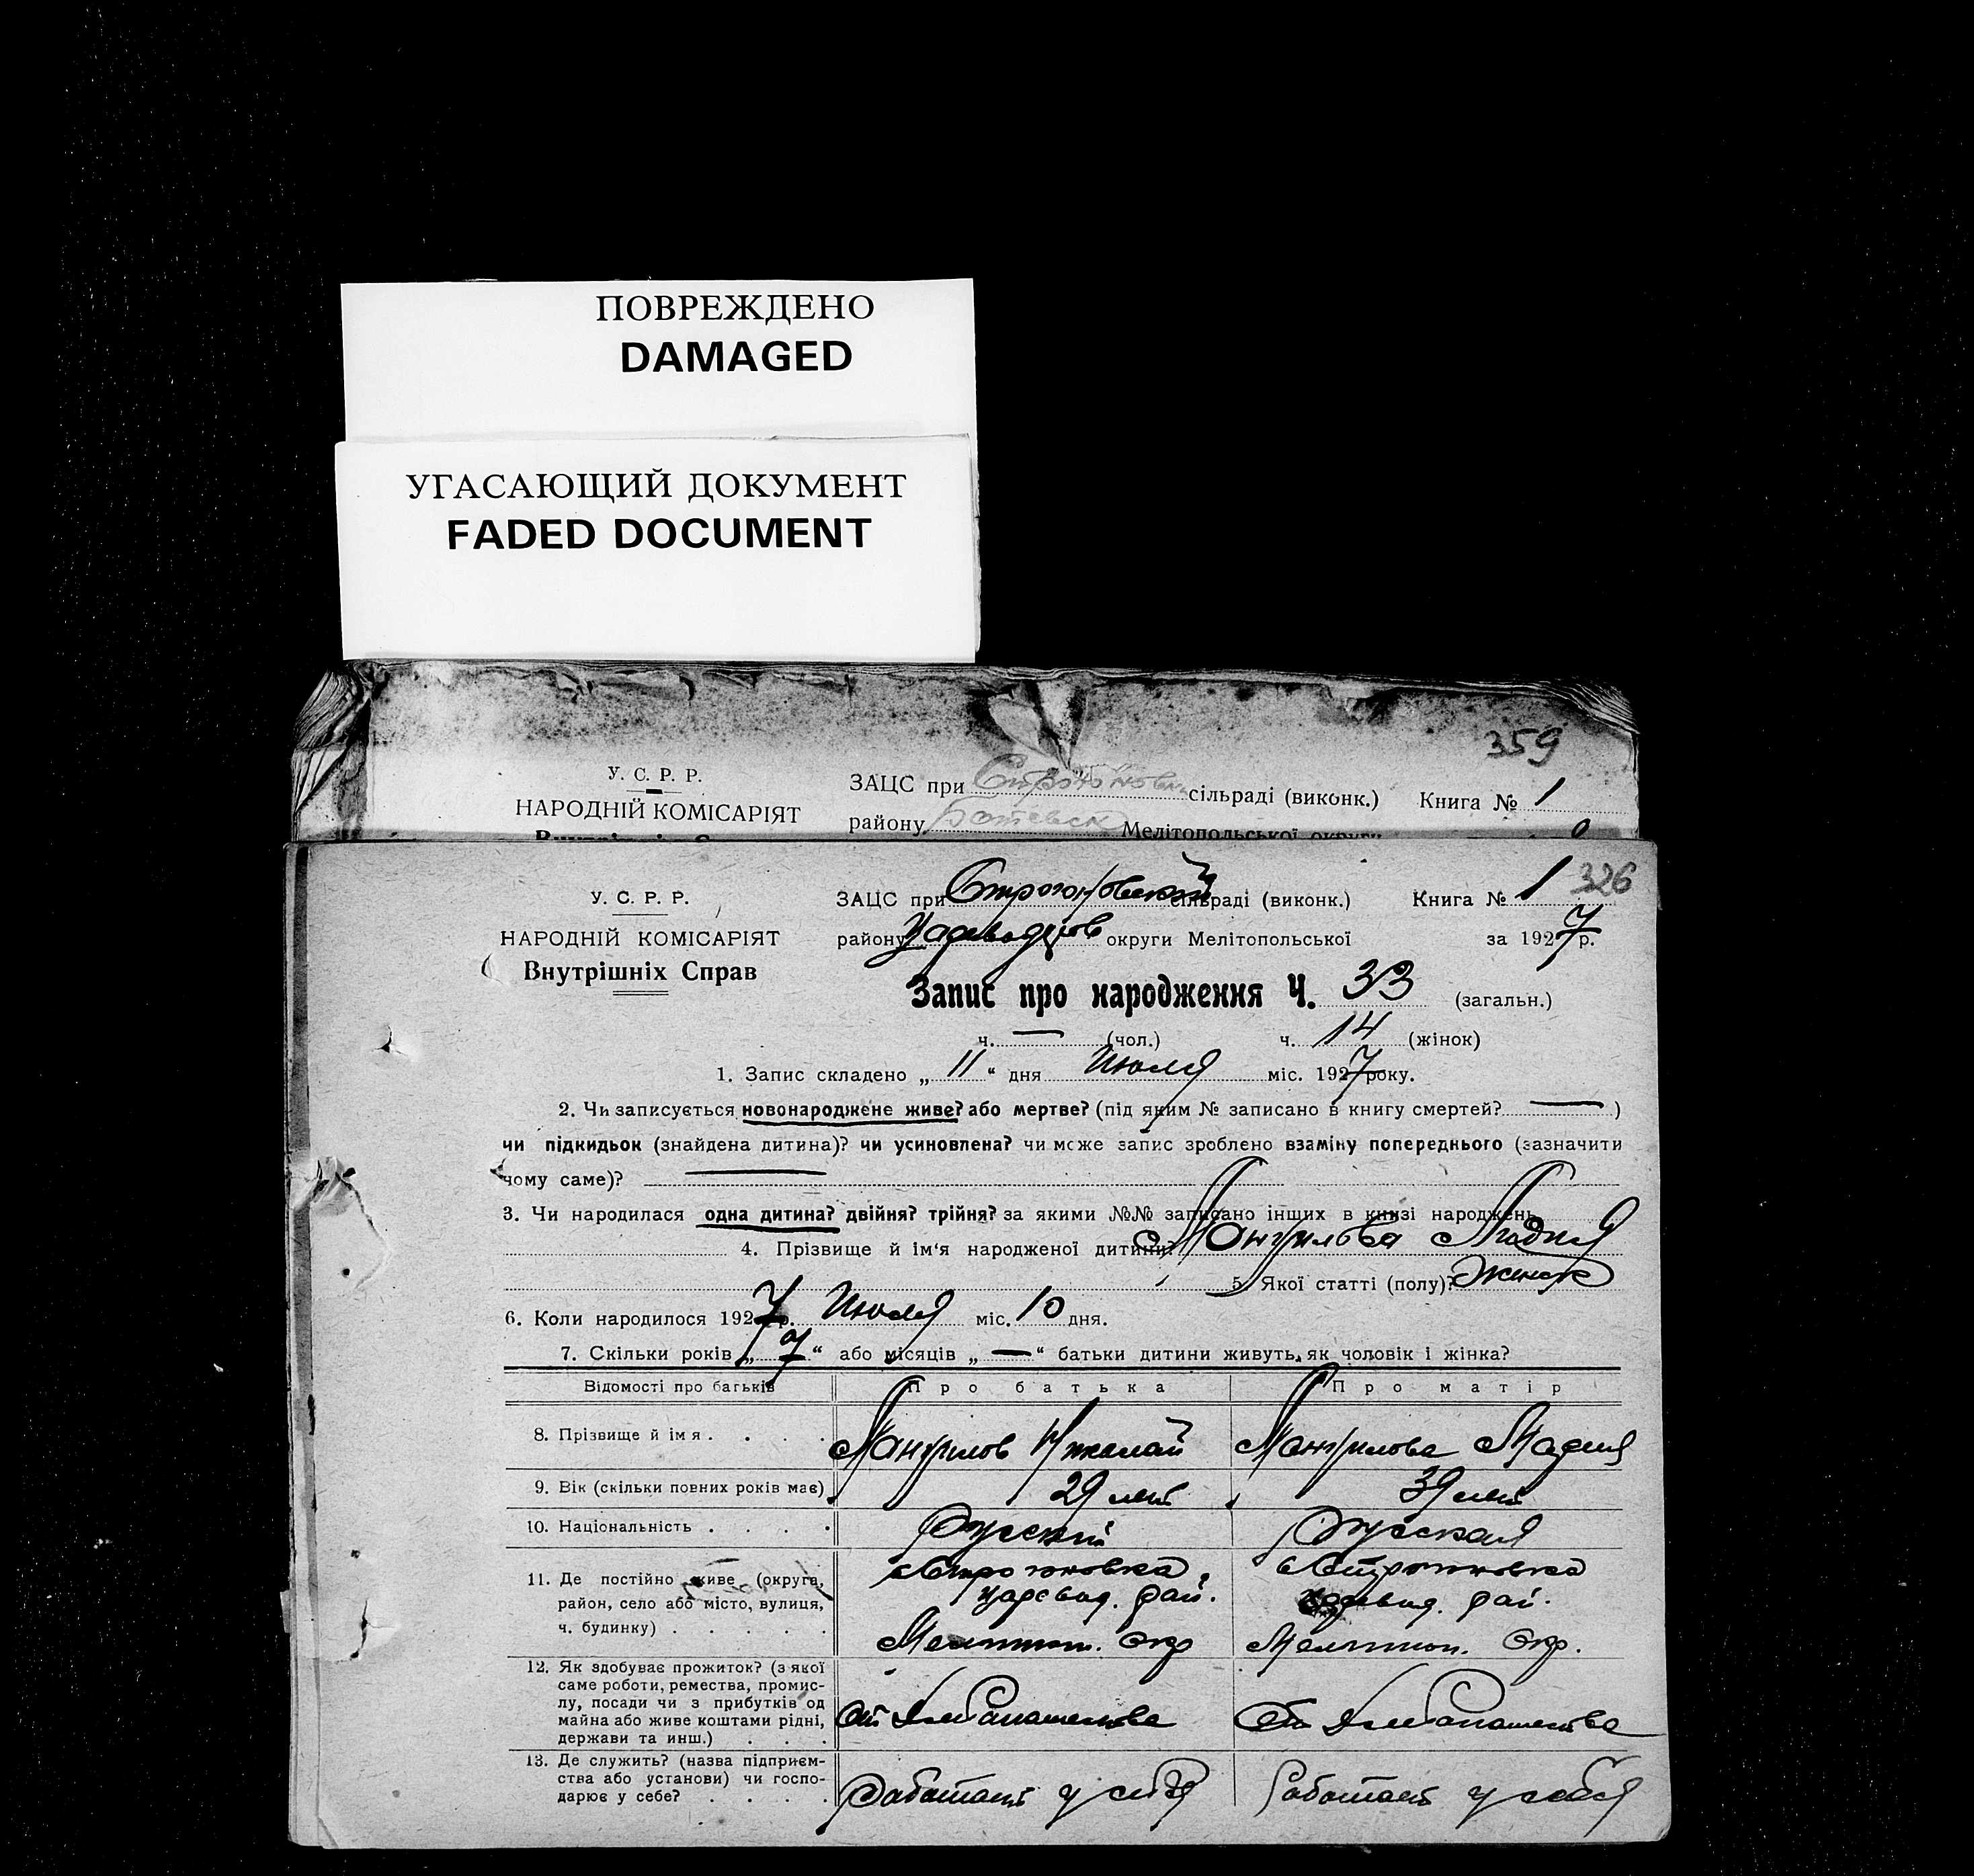 ПОВРЕЖДЕНО
DAMAGED
УГАСАЮЩИЙ ДОКУМЕНТ
FADED DOCUMENT
359
У. С. Р. Р.
НАРОДНІЙ КОМІСАРІЯТ
ЗАЦС при сільраді (виконк.) Книга № 1
району Мелітопольської округи
326
У. С. Р. Р.
НАРОДНІЙ КОМІСАРІЯТ
Внутрішніх Справ
ЗАЦС при сільраді (виконк.) Книга № 1
району округи Мелітопольської за 1927 р.
Запис про народження Ч. 33 (загальн.)
ч. — (чол.) ч. 14 (жінок)
1. Запис складено „ 11 “ дня Июля міс. 1927 року.
2. Чи записується новонароджене живе? або мертве? (під яким № записано в книгу смертей? — )
чи підкидьок (знайдена дитина)? чи усиновлена? чи може запис зроблено взаміну попереднього (зазначити
чому саме)? —
3. Чи народилася одна дитина? двійня? трійня? за якими №№ записано інших в книзі народжень
4. Прізвище й ім‘я народженої дитини?
5. Якої статті (полу)? женск
6. Коли народилося 1927 р. Июля міс. 10 дня.
7. Скільки років „ 7 “ або місяців „ — “ батьки дитини живуть, як чоловік і жінка?
Відомості про батьків Про батька Про матір
8. Прізвище й імя . . . Николай
9. Вік (скільки повних років має) 29 лет 39 лет
10. Національність . . . . Русский Русская
11. Де постійно живе (округа,
район, село або місто, вулиця,
ч. будинку) . . . . .
Царевод. рай. рай.
Мелитоп. Окр Мелитоп. Окр.
12. Як здобуває прожиток? (з якої
саме роботи, ремества, промис-
лу, посади чи з прибутків од
майна або живе коштами рідні,
держави та инш.) . . .
От Хлебопашества От Хлебопашества
13. Де служить? (назва підприєм-
ства або установи) чи госпо-
дарює у себе? . . . .
Работает у себя Работает у себя